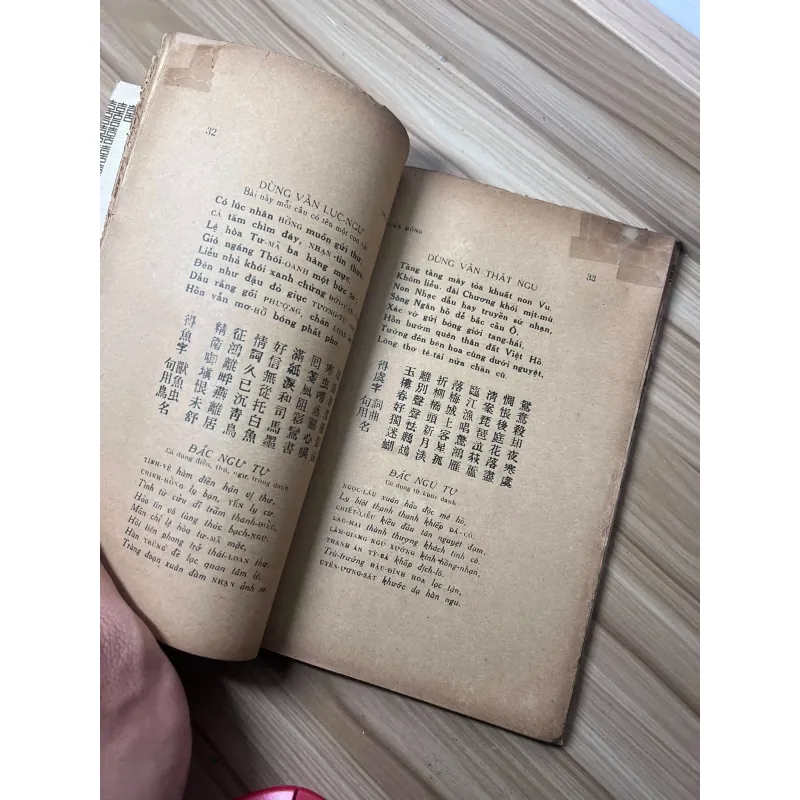 32
DÙNG VẦN LỤC-NGƯ
Bài này mỗi câu có tên một con vật
Có lúc nhân HỒNG muốn gửi thư,
CÁ tăm chìm đáy, NHẠN tin thưa
Lệ hòa Tư-MÃ ba hàng mực,
Gió ngáng Thôi-OANH một bức tờ
Liễu nhả khói xanh chừng
Đèn như đậu đỏ giục TƯƠNG-TƯ
Dẫu rằng gối PHƯỢNG, chăn LOAN
Hồn vẫn mơ-HỒ bóng phất phơ
滿紙淚和司馬墨
好信無從托白魚
情詞久已沉青鳥
征鴻離畔燕離居
精衛啣塡恨未舒
得魚字 獸魚虫
句用鳥名
ĐẮC NGƯ TỰ
Cú dụng điểu, thú, ngư, trùng danh
TINH-VỆ hàm điền hận vị thư,
CHINH-HỒNG ly bạn, YẾN ly cư.
Tình từ cửu dĩ trầm thanh-ĐIỂU,
Hảo tín vô tùng thác bạch-NGƯ.
Mãn chỉ lệ hòa tư-MÃ mặc,
Hồi tiên phong trở thái-LOAN thư.
Hàn TRÙNG đề lạc quan tâm lệ,
Tràng đoạn xuân đàm NHẠN ảnh sơ
HỒNG
33
DÙNG VẦN THẤT NGU
Tầng tầng mây tỏa khuất non Vu,
Khóm liễu, đài Chương khói mịt-mù.
Non Nhạc dẫu hay truyền sứ nhạn,
Sông Ngân hồ dễ bắc cầu Ô,
Xác vờ gửi bóng giới tang-hải,
Hồn bướm quên thân đất Việt Hồ,
Tưởng đến bên hoa cùng dưới nguyệt,
Lòng thơ tê-tái nửa chăn cù
鴛鴦殺刦夜寒虞
惆悵後庭花落盡
清案琵琶泣荻蘆
臨江漁唱驚鴻雁
落梅城上客星孤
折柳橋頭新月淡
離別聲聲怯鷓鴣
玉樓春好獨迷蝴
得虞字 詞曲
句用名
ĐẮC NGU TỰ
Cú dụng từ khúc danh
NGỌC-LÂU xuân hảo độc mê hồ,
Ly biệt thanh thanh khiếp ĐA-CÔ,
CHIẾT-LIỄU kiều đầu tân nguyệt đạm,
LẠC-MAI thành thượng khách tinh cô.
LÂM-GIANG NGƯ XƯỚNG kinh hồng-nhạn,
THANH ÁN TỲ-BÀ khấp địch-lô.
Trù-trướng HẬU-ĐÌNH HOA lạc tận,
UYÊN-ƯƠNG-SÁT khước dạ hàn ngu.